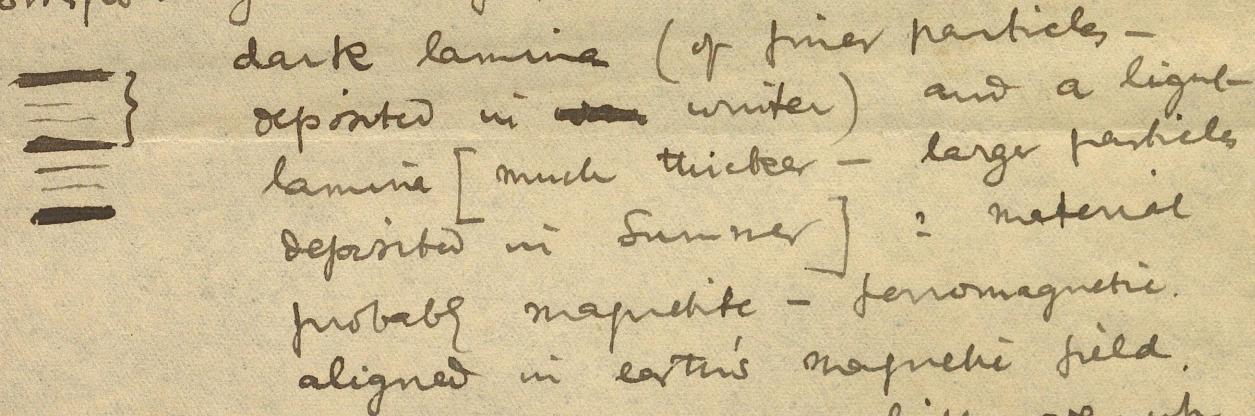 dark lamina (of finer particles -
deposited in winter) and a light
lamina [much thicker - larger particles
deposited in Summer] : material
probably magnetite - ferromagnetic.
aligned in earth's magnetic field.